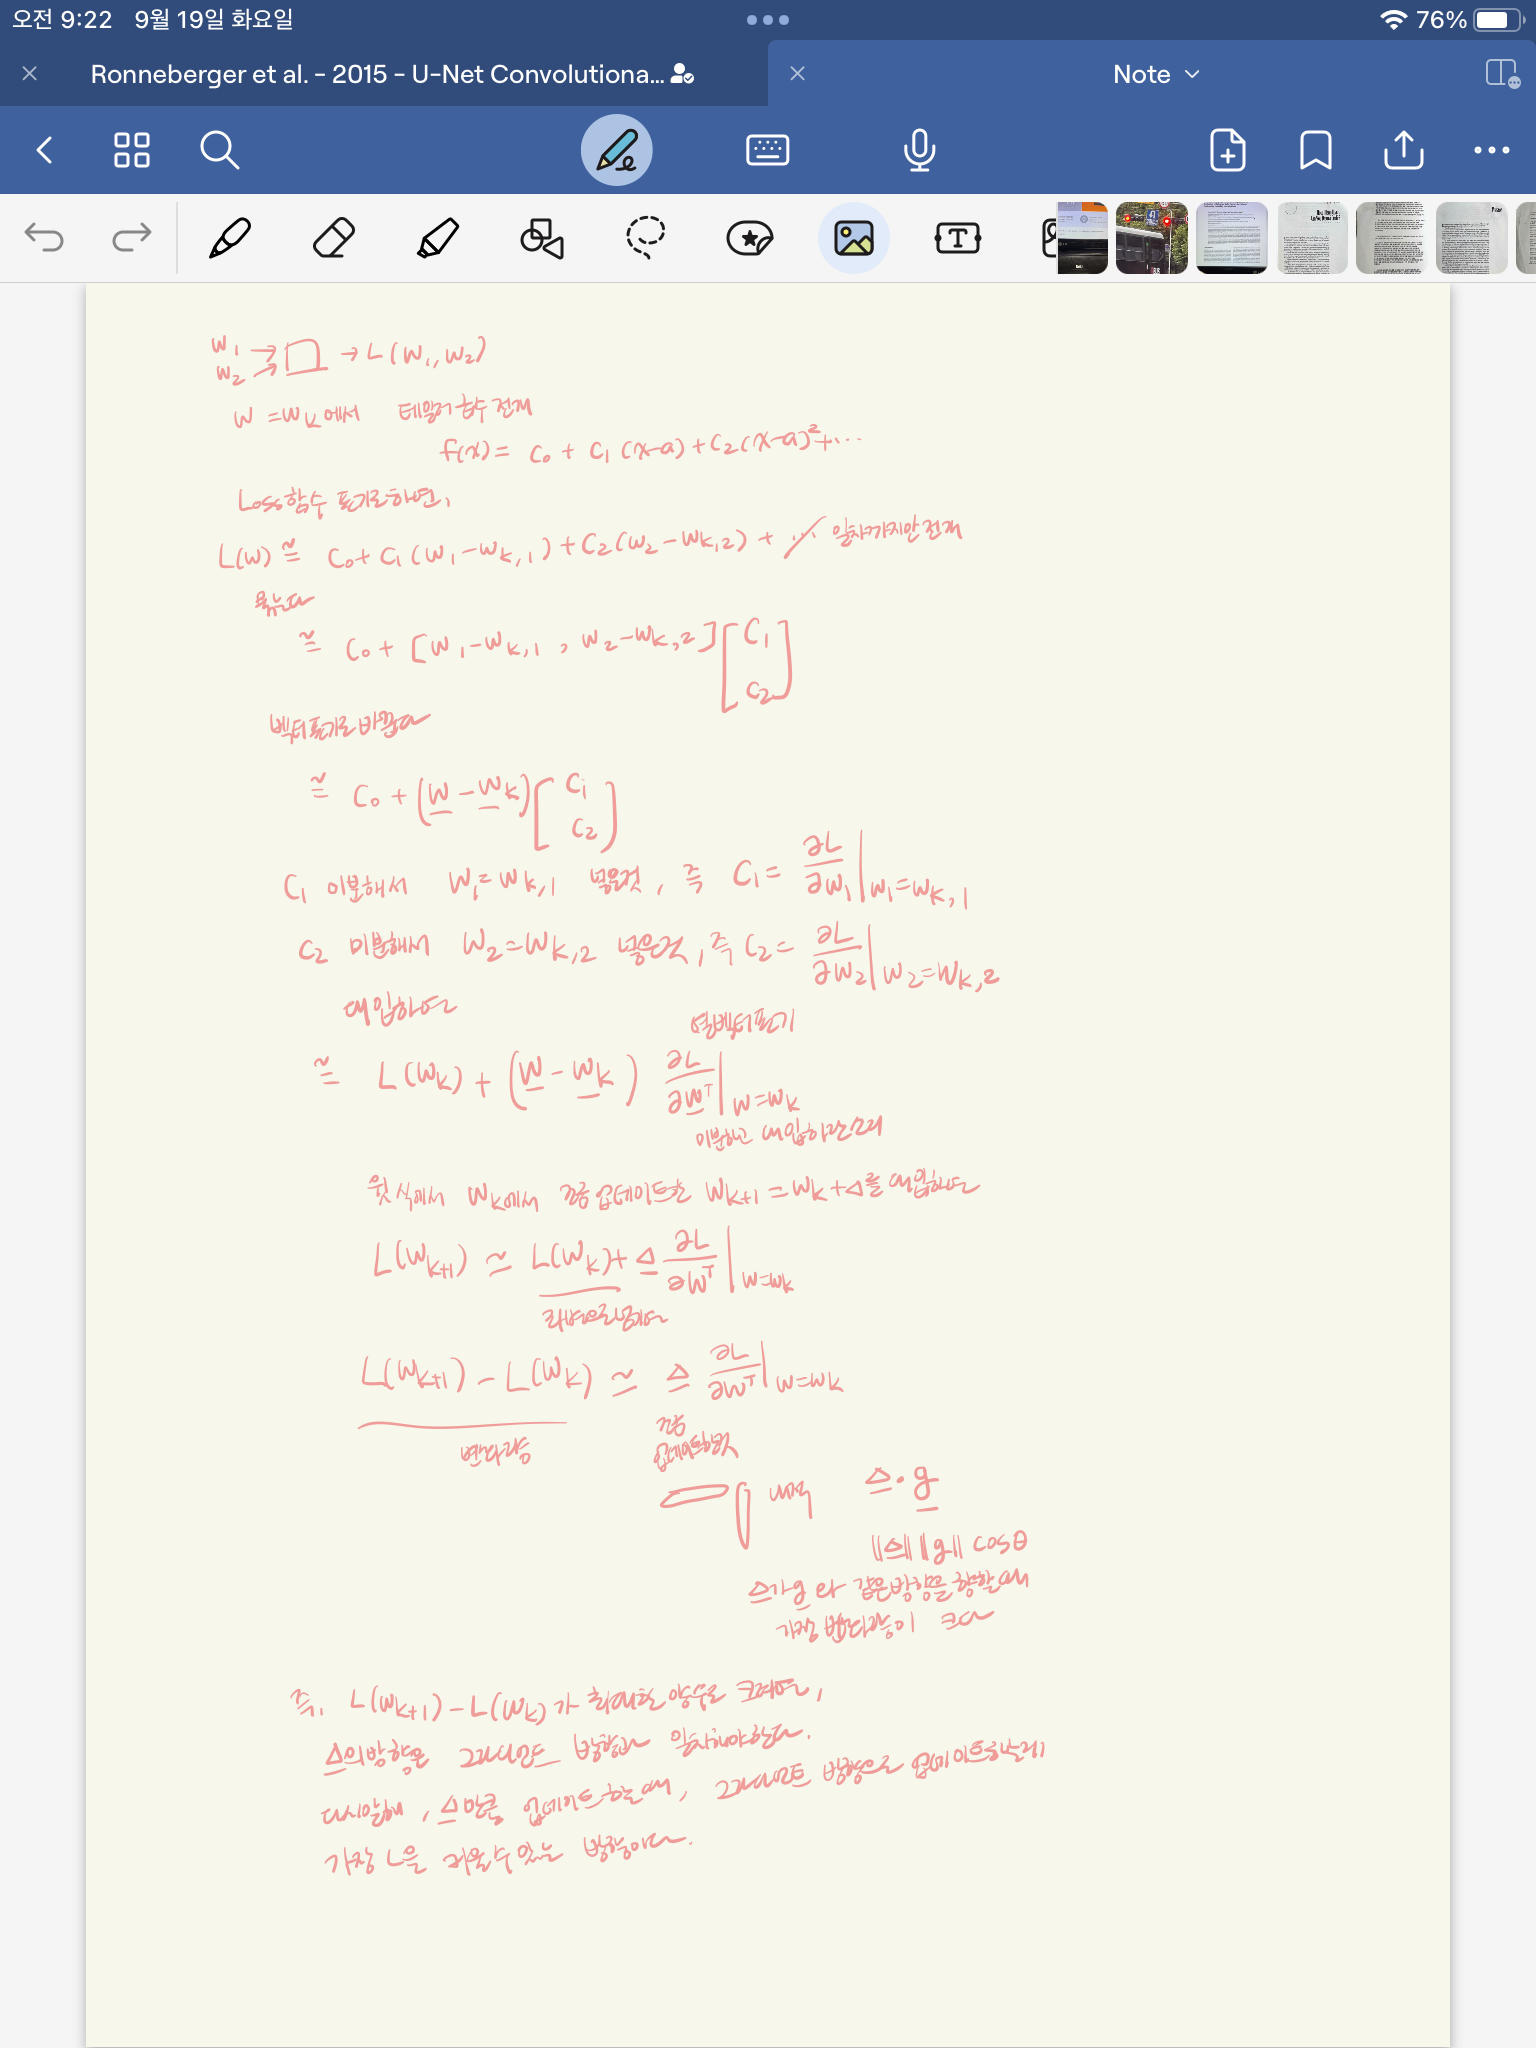 오전 9:22 9월 19일 화요일 76%
Ronneberger et al. - 2015 - U-Net Convolutiona...
Note
w₁
w₂ → L(w₁, w₂)
w = wₖ에서 테일러 급수 전개
f(x) = c₀ + c₁(x-a) + c₂(x-a)² + ...
Loss함수 표기로하면,
L(w) ≅ c₀ + c₁(w₁-wₖ,₁) + c₂(w₂-wₖ,₂) + ... 일차까지만 전개
묶는다
≅ c₀ + [w₁-wₖ,₁ , w₂-wₖ,₂] [c₁ c₂]
벡터표기로 바꾼다
≅ c₀ + (w - wₖ) [c₁ c₂]
c₁ 미분해서 w₁ = wₖ,₁ 넣은것, 즉 c₁ = ∂L/∂w₁ | w₁=wₖ,₁
c₂ 미분해서 w₂ = wₖ,₂ 넣은것, 즉 c₂ = ∂L/∂w₂ | w₂=wₖ,₂
대입하여
열벡터표기
≅ L(wₖ) + (w - wₖ) ∂L/∂wᵀ | w=wₖ
미분하고 대입하란소리
윗 식에서 wₖ에서 조금 업데이트한 wₖ₊₁ = wₖ + Δ를 대입하여
L(wₖ₊₁) ≃ L(wₖ) + Δ ∂L/∂wᵀ | w=wₖ
좌변으로넘겨
L(wₖ₊₁) - L(wₖ) ≃ Δ ∂L/∂wᵀ | w=wₖ
변화량
조금
업데이트한것
내적 Δ·g
||Δ|| ||g|| cosθ
Δ가 g와 같은방향을 향할때
가장 변화량이 크다
즉, L(wₖ₊₁) - L(wₖ)가 최대한 양수로 크려면,
Δ의 방향은 그래디언트 방향과 일치해야한다.
다시말해, Δ만큼 업데이트 할때, 그래디언트 방향으로 업데이트하는게
가장 L을 키울수 있는 방향이다.